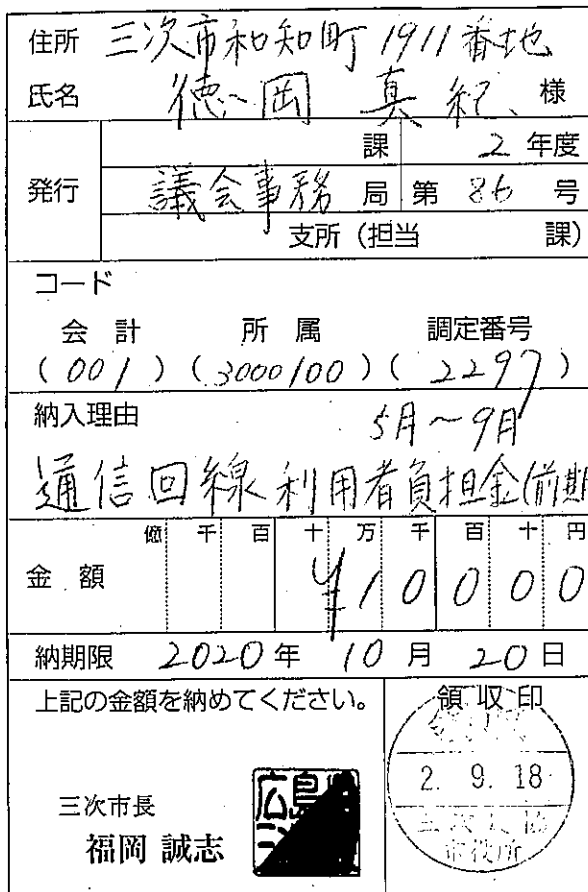 住所 三次市和知町1911番地
氏名 徳岡 真紀 様
課 2年度
発行 議会事務局 第86号
支所(担当 課)
コード
会計 所属 調定番号
(001)(3000100)(2297)
納入理由 5月~9月
通信回線利用者負担金(前期
億 千 百 十 万 千 百 十 円
金額 ¥10000
納期限 2020年10月20日
上記の金額を納めてください。
領収印
2. 9. 18
市役所
三次市長
福岡 誠志
広島